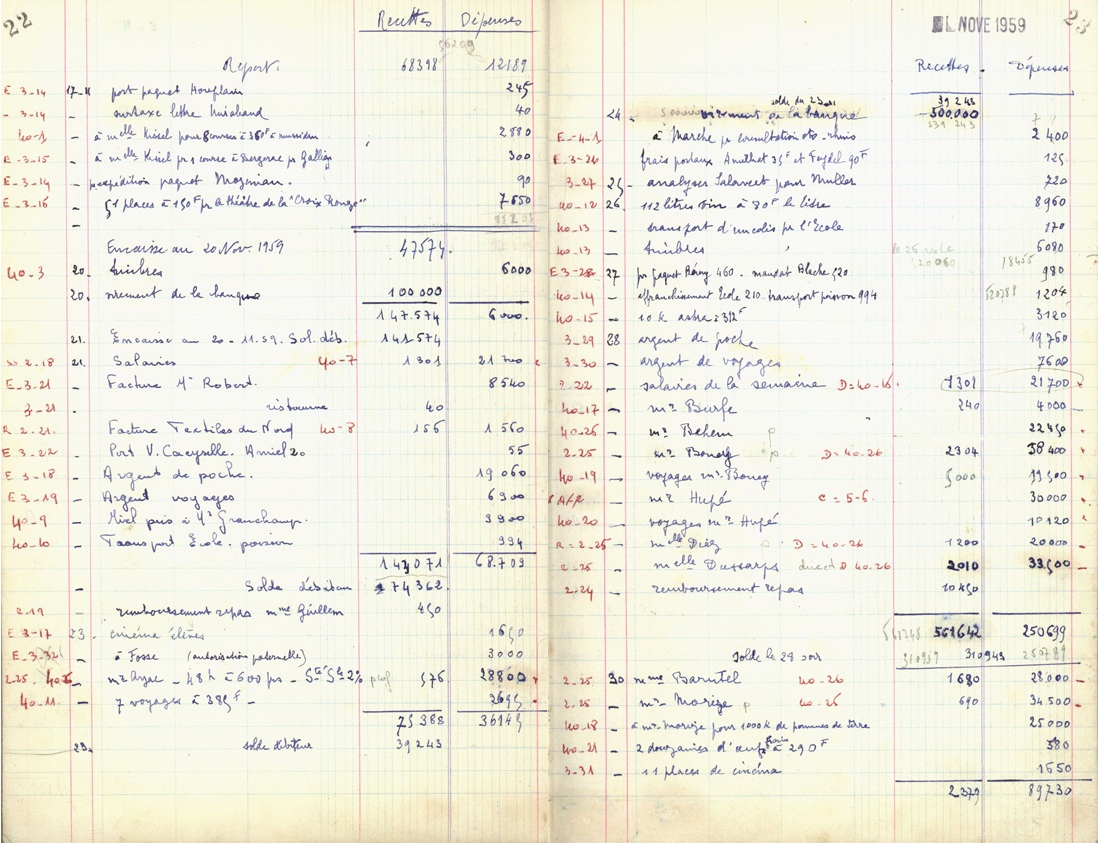 22
Recettes Dépenses
56209
Report. 68398 12189
E-3-14 17-11 post paquet 245
-3-14 – surtaxe lettre 40
40-1 – à melle Kisiel pour 8 courses à 360F 2880
E-3-15 – à melle Kisiel pr 1 course à Bergerac pr 300
E-3-14 – pr expédition paquet Mosinian. 90
E-3-16 – 51 places à 150F pr le théâtre de la "Croix Rouge" 7650
Encaisse au 20 Nov. 1959 47574.
40-3 20. timbres 6000
20. virement de la banque 100 000
147.574 6000.
21. Encaisse au 20-11.59. Sol. déb. 141574
2-18 21. Salaires 40-7 1301 21700
E-3-21 – Facture Mr Robert. 8540
3-21 ristourne 40
R 2-21. – Facture Textiles du Nord 40-8 156 1560
E 3-22 – Port V. Caeyselle. Amiel 20 55
E 3-18 – Argent de poche. 19060
E 3-19 – Argent voyages 6900
40-9 – Miel pris à Mr Granchamp. 3900
40-10 – Transport Ecole. poisson 994
143071 68.709
– Solde débiteur 74362.
2-19 – remboursement repas mme Guillem 450
E 3-17 23. cinéma élèves 1650
E-3-32 – à Fosse (autorisation paternelle) 3000
2-25 40-26 – mr – 48h à 600 pr – Sté Sle 2% prof 576 28800
40-11 – 7 voyages à 385F – 2695
75388 36145
23. solde débiteur 39243
L NOVE 1959
23
Recettes. Dépenses
solde du 23 soir 39243
24 – virement de la banque 500,000
539 243
E-4-1 – à Marche pr consultation oto-rhino 2400
E-3-26 – frais postaux Amilhet 35F et Feydel 90F 125
3-27 25 – analyses Salavert pour Muller 720
40-12 26. 112 litres vin à 80F le litre 8960
40-13 – transport d'un colis pr l'Ecole 170
40-13 – timbres 6080
le 26 reste
520060
18455
E3-28 27 pr paquet Rémy 460. mandat Blache 520 980
40-14 – affranchissement Ecole 210. transport poisson 994 520788 1204
40-15 – 10 K astra à 312F 3120
3-29 28 argent de poche 19.760
3-30 – argent de voyages 7600
2-22 – salaires de la semaine D=40-16. 1301 21700
40-17 – mr Burfe 240 4000
40-26 – mr Behem p 22450
2-25 – mr Boney p D=40-26 2304 38400
40-19 – voyages mr Boney 5000 19500
CAFR – mr Hupé C=5-6. 30000
40-20 – voyages mr Hupé 10120
R=2-25 – melle Diez p D=40-26 1200 20000
2-25 – melle Dussarps direct D 40-26 2010 33,500
2-24 – remboursement repas 10450
561248 561642 250699
solde le 28 soir 310959 310943 250789
2-25 30 mme Barutel 40-26 1680 28000
2-25 – mr Morize p 40-26 690 34.500
40-18 – à mr Morize pour 1000k de pommes de terre 25000
40-21 – 2 douzaines d'œufs frais à 290F 580
3-31 – 11 places de cinéma 1650
2379 89730